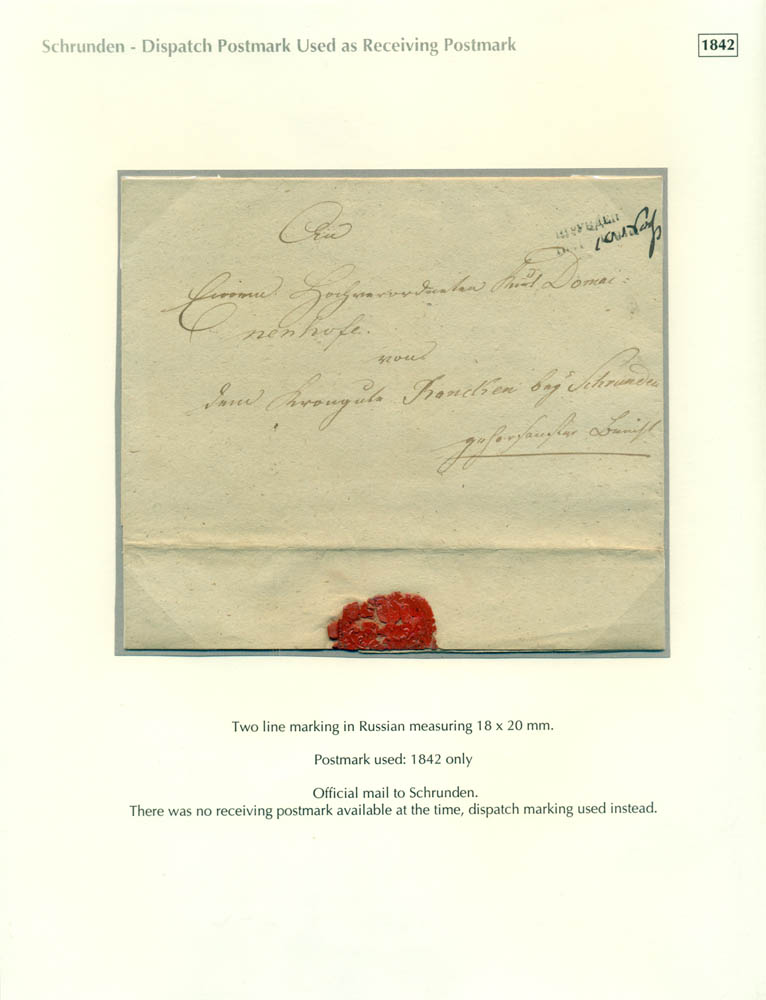 Schrunden - Dispatch Postmark Used as Receiving Postmark
1842
An
Einen Hochverordneten Domai-
nenhofe.
von
dem Krongute Schrunden
gehorsamster Bericht
Two line marking in Russian measuring 18 x 20 mm.
Postmark used: 1842 only
Official mail to Schrunden.
There was no receiving postmark available at the time, dispatch marking used instead.